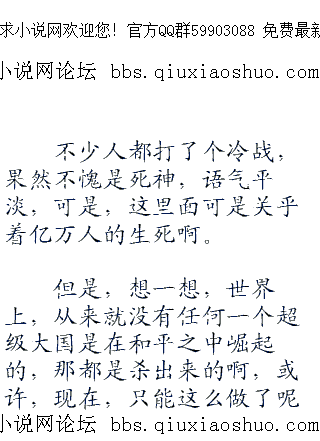 求小说网欢迎您! 官方QQ群59903088 免费最新
小说网论坛 bbs.qiuxiaoshuo.com
不少人都打了个冷战，
果然不愧是死神，语气平
淡，可是，这里面可是关乎
着亿万人的生死啊。
但是，想一想，世界
上，从来就没有任何一个超
级大国是在和平之中崛起
的，那都是杀出来的啊，或
许，现在，只能这么做了呢
小说网论坛 bbs.qiuxiaoshuo.com